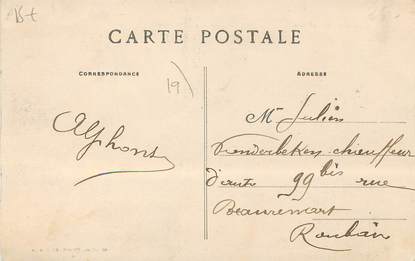 15+
CARTE POSTALE
CORRESPONDANCE
ADRESSE
19)
Alphonse
Mr Julien
Vanderbeken chauffeur
d'auto 99 bis rue
Beaurewart
Roubaix